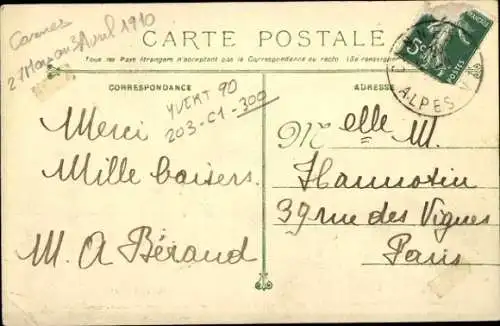 Cannes
27 Mars au 3 Avril 1910
CARTE POSTALE
Tous les Pays étrangers n'acceptent pas la Correspondance au recto (Se renseigner
CORRESPONDANCE
ADRESSE
YVERT 90
203-C1-300
Merci
Mille baisers
M. A Béraud
Melle M.
Hannotin
39 rue des Vignes
Paris
5c
POSTES
ALPES